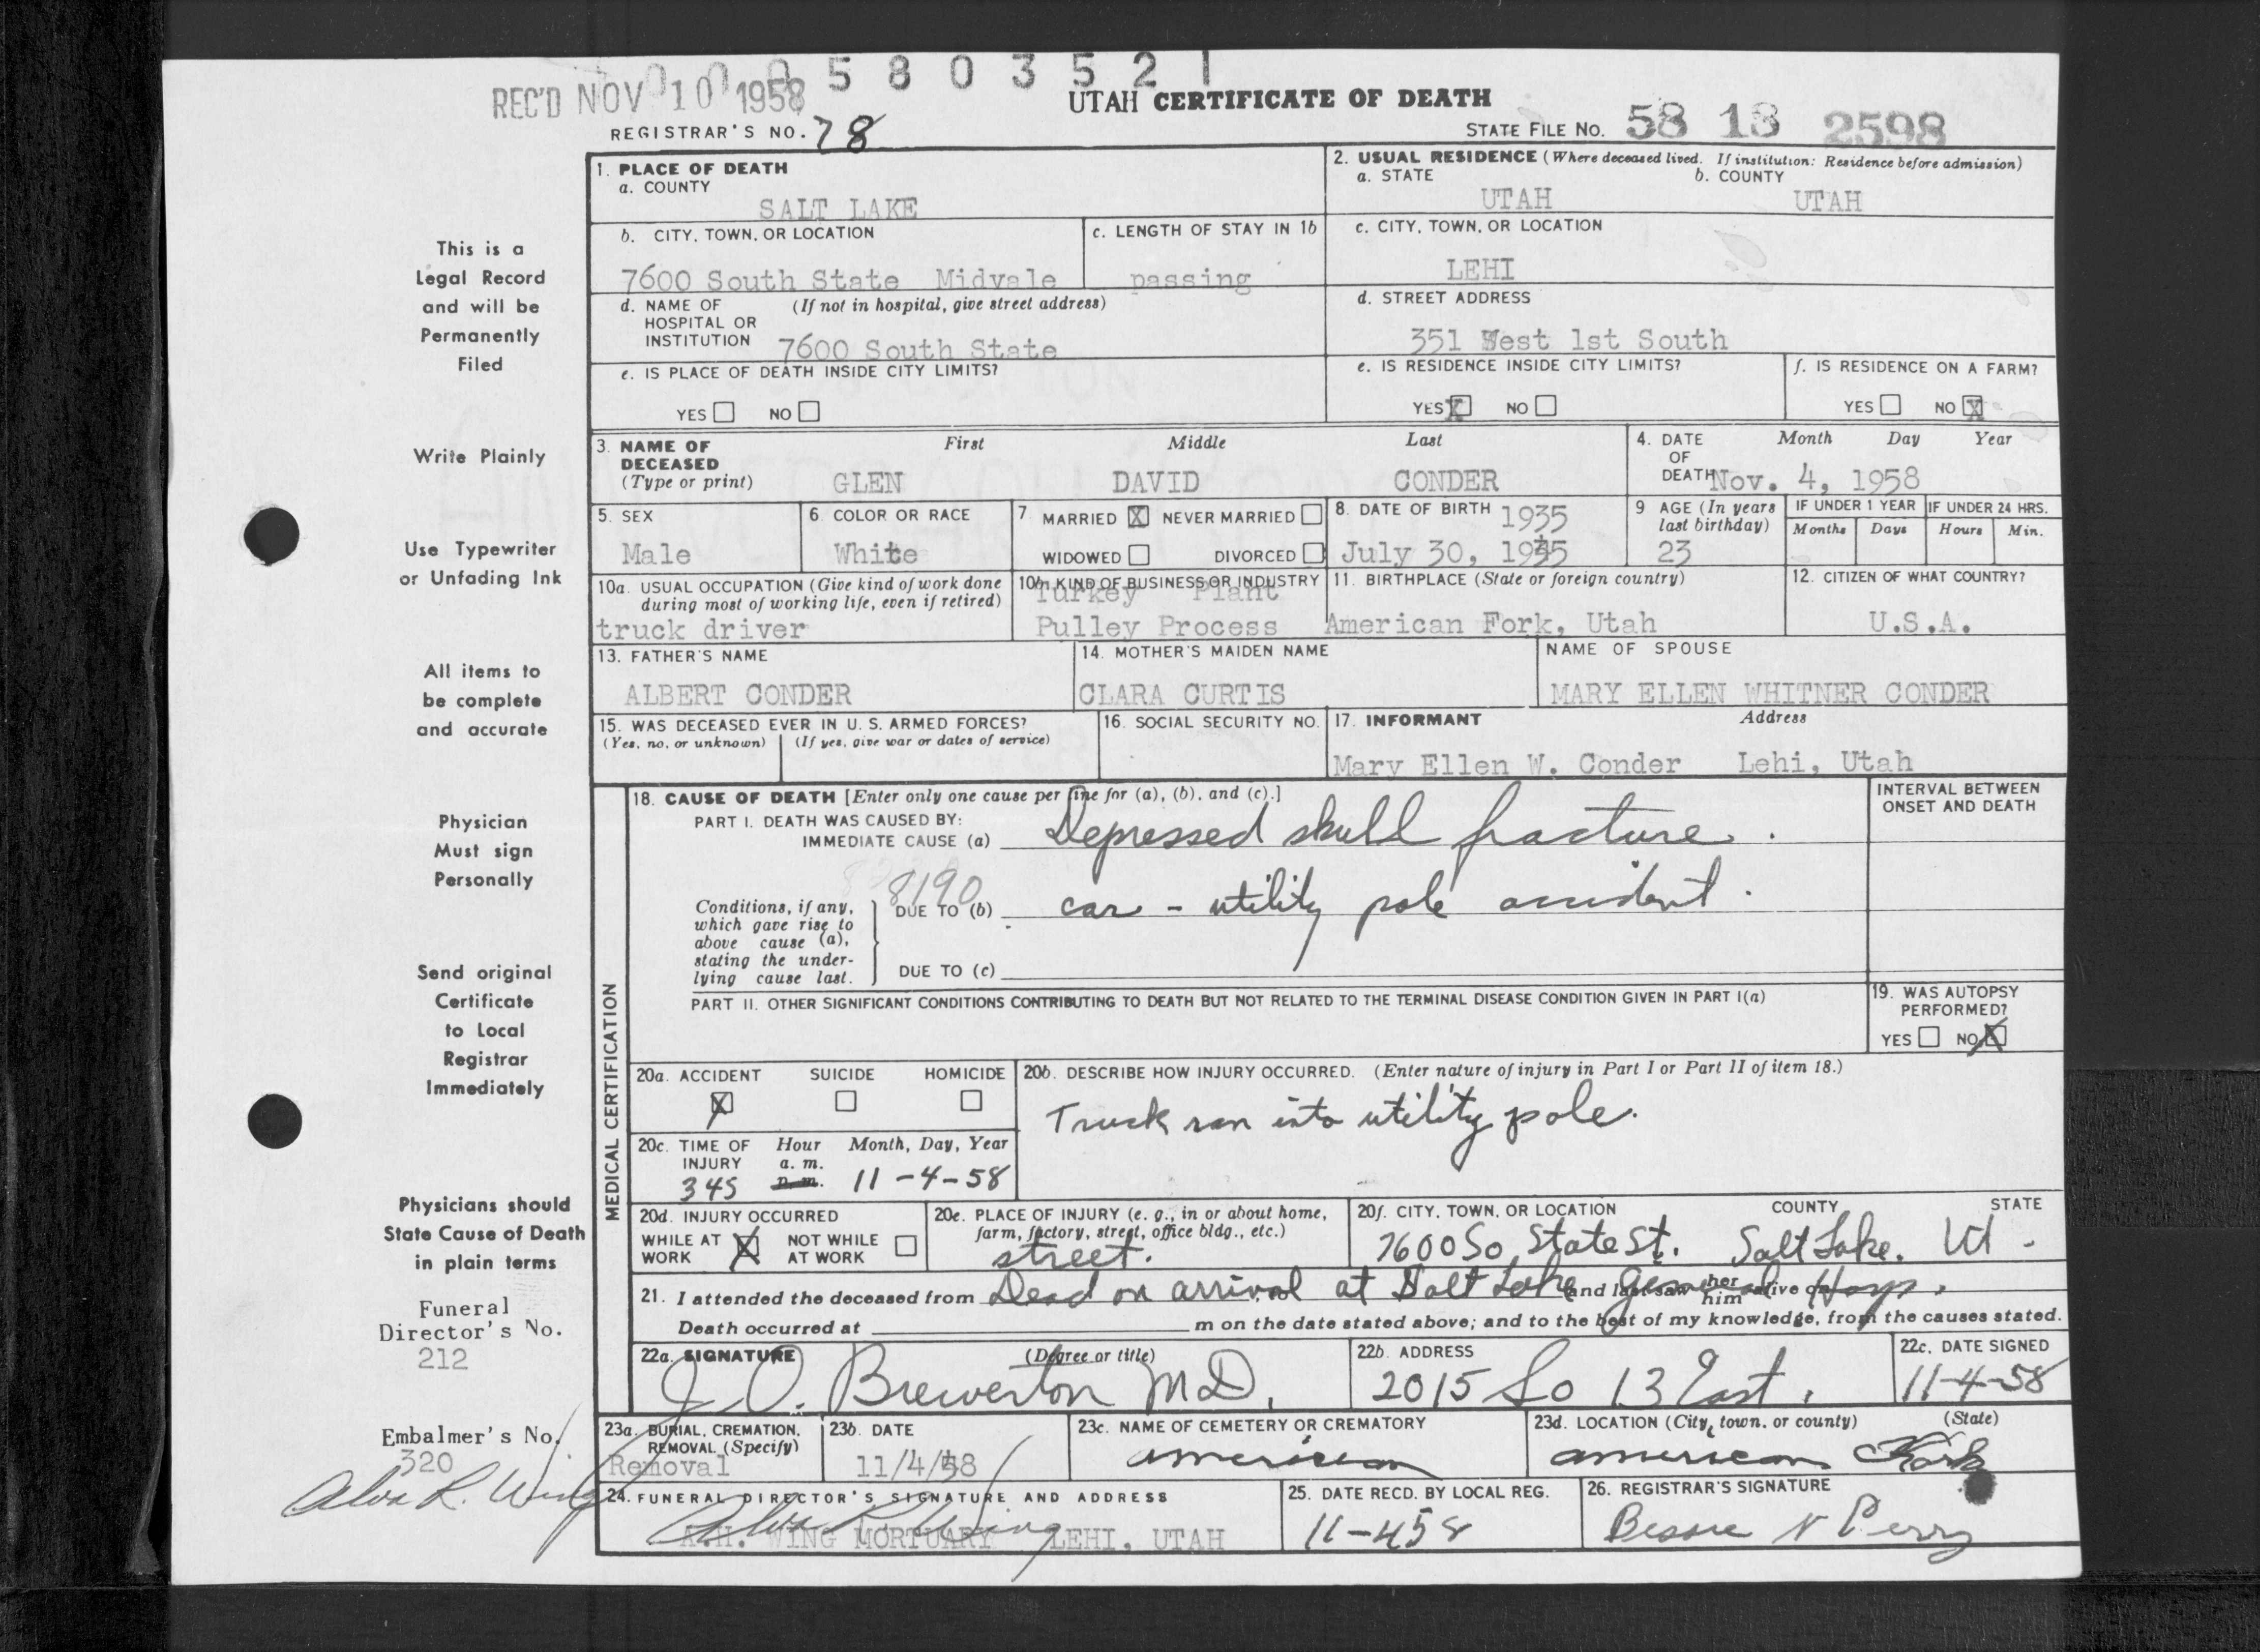 0 0 0 5 8 0 3 5 2 1
REC'D NOV 10 1958
UTAH CERTIFICATE OF DEATH
REGISTRAR'S NO. 78
STATE FILE NO. 58 18 2598
This is a
Legal Record
and will be
Permanently
Filed
Write Plainly
Use Typewriter
or Unfading Ink
All items to
be complete
and accurate
Physician
Must sign
Personally
Send original
Certificate
to Local
Registrar
Immediately
Physicians should
State Cause of Death
in plain terms
Funeral
Director's No.
212
Embalmer's No.
320
Alva R. Wing
1. PLACE OF DEATH
a. COUNTY
SALT LAKE
b. CITY, TOWN, OR LOCATION
7600 South State Midvale
c. LENGTH OF STAY IN 1b
passing
d. NAME OF (If not in hospital, give street address)
HOSPITAL OR
INSTITUTION 7600 South State
e. IS PLACE OF DEATH INSIDE CITY LIMITS?
YES NO
2. USUAL RESIDENCE (Where deceased lived. If institution: Residence before admission)
a. STATE b. COUNTY
UTAH UTAH
c. CITY, TOWN, OR LOCATION
LEHI
d. STREET ADDRESS
351 West 1st South
e. IS RESIDENCE INSIDE CITY LIMITS?
YES X NO
f. IS RESIDENCE ON A FARM?
YES NO X
3. NAME OF DECEASED (Type or print)
First Middle Last
GLEN DAVID CONDER
4. DATE OF DEATH Month Day Year
Nov. 4, 1958
5. SEX
Male
6. COLOR OR RACE
White
7. MARRIED X NEVER MARRIED
WIDOWED DIVORCED
8. DATE OF BIRTH 1935
July 30, 1935
9 AGE (In years last birthday)
23
IF UNDER 1 YEAR IF UNDER 24 HRS.
Months Days Hours Min.
10a. USUAL OCCUPATION (Give kind of work done
during most of working life, even if retired)
truck driver
10b. KIND OF BUSINESS OR INDUSTRY
Turkey Plant
Pulley Process
11. BIRTHPLACE (State or foreign country)
American Fork, Utah
12. CITIZEN OF WHAT COUNTRY?
U.S.A.
13. FATHER'S NAME
ALBERT CONDER
14. MOTHER'S MAIDEN NAME
CLARA CURTIS
NAME OF SPOUSE
MARY ELLEN WHITNER CONDER
15. WAS DECEASED EVER IN U. S. ARMED FORCES?
(Yes, no, or unknown) (If yes, give war or dates of service)
16. SOCIAL SECURITY NO.
17. INFORMANT Address
Mary Ellen W. Conder Lehi, Utah
MEDICAL CERTIFICATION
18. CAUSE OF DEATH [Enter only one cause per line for (a), (b), and (c).]
INTERVAL BETWEEN
ONSET AND DEATH
PART I. DEATH WAS CAUSED BY:
IMMEDIATE CAUSE (a) Depressed skull fracture.
8190
Conditions, if any,
which gave rise to
above cause (a),
stating the under-
lying cause last.
DUE TO (b) car - utility pole accident.
DUE TO (c)
PART II. OTHER SIGNIFICANT CONDITIONS CONTRIBUTING TO DEATH BUT NOT RELATED TO THE TERMINAL DISEASE CONDITION GIVEN IN PART I(a)
19. WAS AUTOPSY
PERFORMED?
YES NO X
20a. ACCIDENT SUICIDE HOMICIDE
X
20b. DESCRIBE HOW INJURY OCCURRED. (Enter nature of injury in Part I or Part II of item 18.)
Truck ran into utility pole.
20c. TIME OF INJURY Hour Month, Day, Year
a. m.
345 p. m. 11-4-58
20d. INJURY OCCURRED
WHILE AT WORK X NOT WHILE AT WORK
20e. PLACE OF INJURY (e. g., in or about home,
farm, factory, street, office bldg., etc.)
street.
20f. CITY, TOWN, OR LOCATION COUNTY STATE
7600 So State St. Salt Lake. Ut.
21. I attended the deceased from Dead on arrival at Salt Lake General Hosp. and last saw her him alive on
Death occurred at m on the date stated above; and to the best of my knowledge, from the causes stated.
22a. SIGNATURE (Degree or title)
J O. Brewerton MD.
22b. ADDRESS
2015 So 13 East.
22c. DATE SIGNED
11-4-58
23a. BURIAL, CREMATION,
REMOVAL (Specify)
Removal
23b. DATE
11/4/58
23c. NAME OF CEMETERY OR CREMATORY
American
23d. LOCATION (City, town, or county) (State)
American Fork
24. FUNERAL DIRECTOR'S SIGNATURE AND ADDRESS
Alva R Wing
A.H. WING MORTUARY LEHI, UTAH
25. DATE RECD. BY LOCAL REG.
11-458
26. REGISTRAR'S SIGNATURE
Bessie N Perry